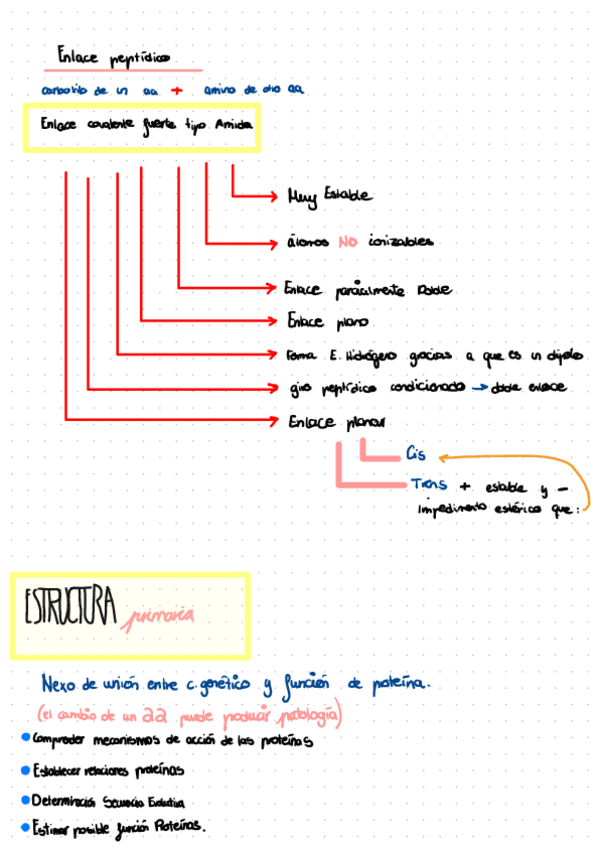 Enlace peptídico
carboxilo de un aa + amino de otro aa
Enlace covalente fuerte tipo Amida
Muy Estable
átomos NO ionizables
Enlace parcialmente Doble
Enlace plano
Forma E. Hidrógeno gracias a que es un dipolo
giro peptídico condicionado → doble enlace
Enlace planar
Cis
Trans + estable y -
impedimento estérico que:
ESTRUCTURA primaria
Nexo de unión entre c.genético y función de proteína.
(el cambio de un aa puede producir patología)
Comprender mecanismos de acción de las proteínas
Establecer relaciones proteínas
Determinación Secuencia Evolutiva
Estimar posible función Proteínas.